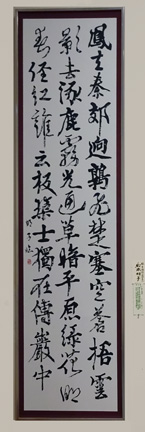 鳳去秦郊迥鶉飛楚塞空蒼梧雲
影去涿鹿霧光通草暗平原綠花明
春徑紅誰言板築士獨在傅巖中